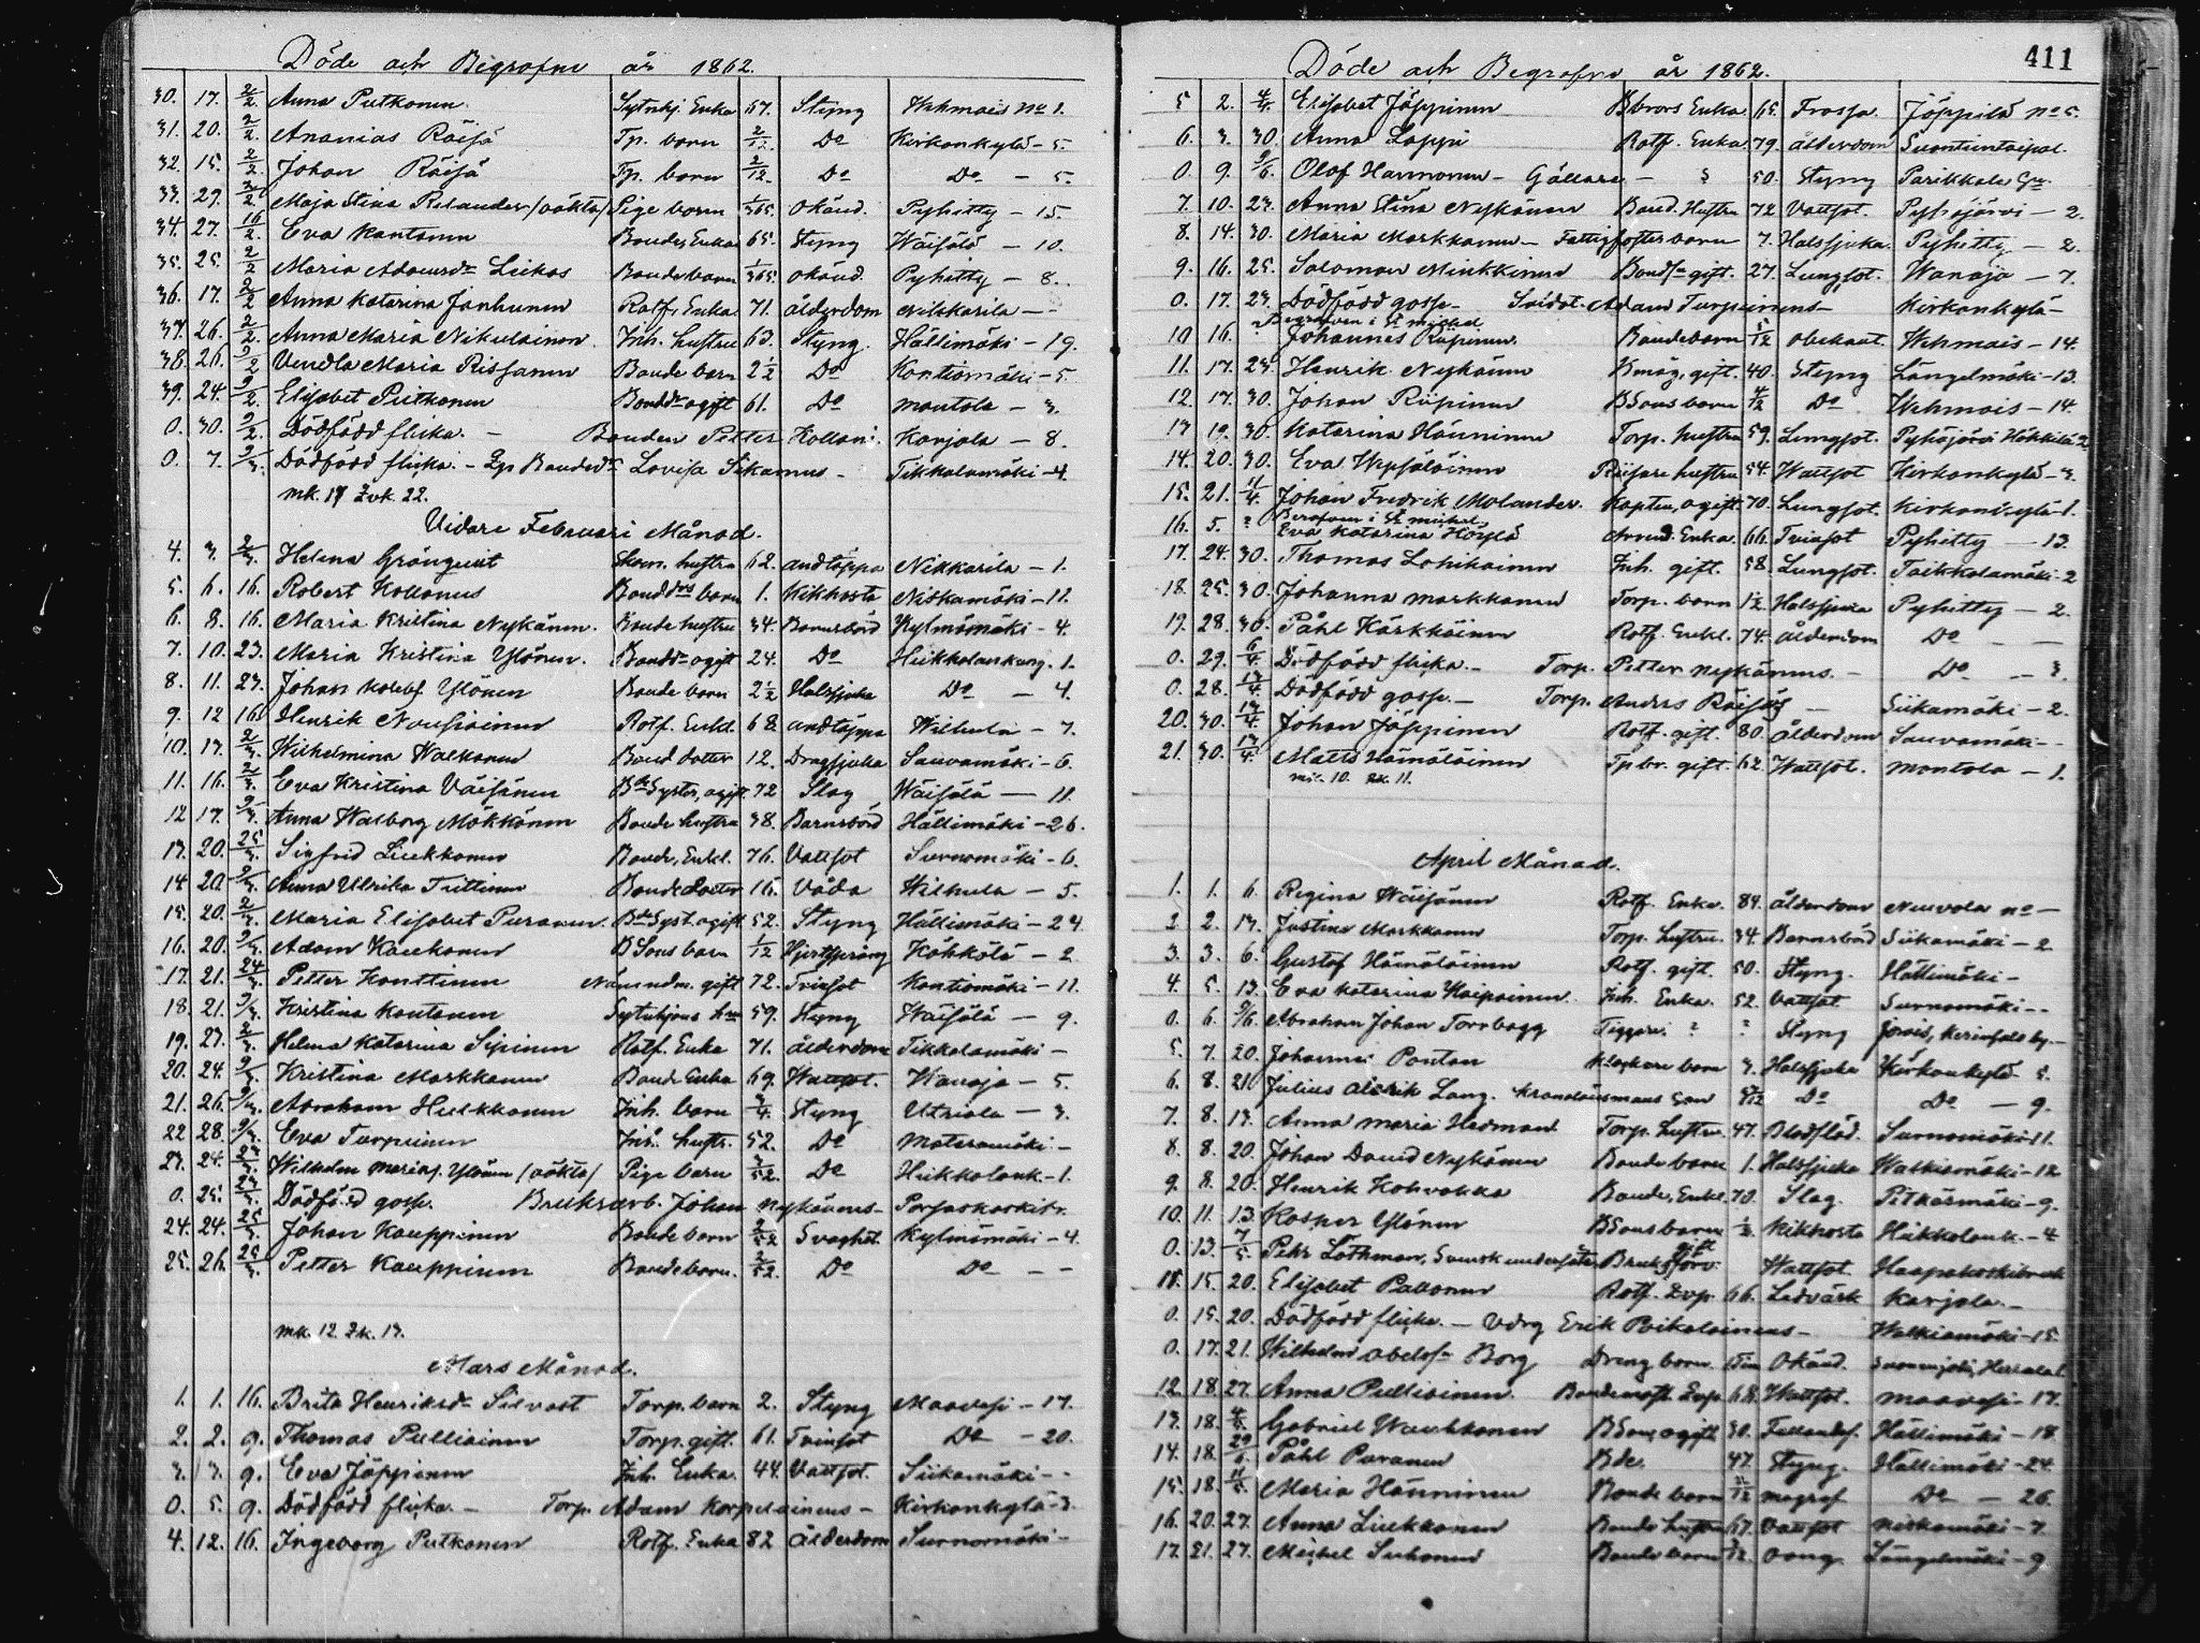 Döde och Begrafne år 1862.
30. 17. 2/2. Anna Putkonen Sytnhj. Enka 67. Styng Wehmais No 1.
31. 20. 2/2. Ananias Räisä Tp. barn 2/12. Do Kirkonkylä - 5.
32. 15. 2/2. Johan Räisä Tp. barn 2/12. Do Do - 5.
33. 29. Maja Stina Relander /oäkta/ Pige barn 1/365. Okänd. Pyhitty - 15.
34. 27. 16/2. Eva Kantanen Bondes Enka 65. Styng Wäisälä - 10.
35. 25. 2/2 Maria Adamsdr Liekas Bonde barn 1/365. okänd. Pyhitty - 8.
36. 17. 2/2 Anna Katarina Janhunen Rotf. Enka 71. ålderdom Nikkarila -
37. 26. 2/2. Anna Maria Nikulainen Inh. hustru 63. Styng. Hällimäki - 19.
38. 26. 9/2 Vendla Maria Rissanen Bonde barn 2 1/2 Do Kontiomäki - 5.
39. 24. 9/2. Elisabet Putkonen Bonddr ogift 61. Do Montola - 3.
0. 30. 9/2. Dödfödd flicka. - Bonden Petter Kollani. Karjala - 8.
0. 7. 9/3. Dödfödd flicka. - Bondedr Lovisa Sikanens - Tikkalamäki - 4.
mk. 17 Qvk. 22.
Vidare Februari Månad.
4. 3. 2/3. Helena Grönqvist Skom. hustru 62. andtäppa Nikkarila - 1.
5. 6. 16. Robert Kollanus Bonddrs barn 1. Kikhosta Niskamäki - 11.
6. 8. 16. Maria Kristina Nykänen. Bonde hustru 34. Barnsbörd Kylmämäki - 4.
7. 10. 23. Maria Kristina Ylönen. Bonddr ogift 24. Do Heikkolankang. 1.
8. 11. 23. Johan Ylönen Bonde barn 2 1/2 Halssjuka Do - 4.
9. 12 16. Henrik Nousiainen Rotf. Enkl. 68. andtäppa Wilhula - 7.
10. 13. 2/3. Wilhelmina Walkonen Bond dotter 12. Dragsjuka Sauvamäki - 6.
11. 16. 2/3. Eva Kristina Väisänen Bdes Syster, ogift. 72 Slag Wäisälä - 11.
12 17. 9/3. Anna Walborg Mökkönen Bonde hustru 38. Barnsbörd Hällimäki - 26.
13. 20. 25/3. Sigfrid Liukkonen Bonde, Enkl. 76. Vattsot Surnomäki - 6.
14 20. 9/3. Anna Ulrika Tuttinen Bonde dotter 16. Våda Wilhula - 5.
15. 20. 2/3. Maria Elisabet Puranen. Bdes Syst. ogift 52. Styng Hällimäki - 24
16. 20. 9/3. Adam Kaukonen B Sons barn 1/12 Hjertsprång Kökkölä - 2
17. 21. 24/3. Petter Konttinen Nämndm. gift 72. Tvinsot Kontiomäki - 11.
18. 21. 9/3. Kristina Kantonen Sytnhjons hru 59. Styng Wäisälä - 9.
19. 23. 2/3. Helena Katarina Sipinen Rotf. Enka 71. ålderdom Tikkalamäki -
20. 24. 9/3. Kristina Markkanen Bonde Enka 69. Wattsot. Wanaja - 5.
21. 26. 9/3. Abraham Hulkkonen Inh. barn 3/4. Styng Utriala - 3.
22 28. 9/3. Eva Turpeinen Inh. hustr. 52. Do Mataramäki -
23. 24. 23/3. Wilhelm Marias. Ylönen /oäkta/ Pige barn 3/52. Do Heikkolank - 1.
0. 25. 23/3. Dödfödd gosse. Bruksarb. Johan Nykänens - Porsaskoskibr.
24. 24. 25/3. Johan Kauppinen Bonde barn 2/52 Svaghet. Kylmämäki - 4.
25. 26. 25/3. Petter Kauppinen Bonde barn. 2/52. Do Do - -
mk. 12. Qk. 13.
Mars Månad.
1. 1. 16. Brita Henriksdr Silvast Torp. barn 2. Styng Maavesi - 17.
2. 2. 9. Thomas Pulliainen Torp. gift. 61. Tvinsot Do - 20.
3. 3. 9. Eva Jäppinen Inh. Enka. 44. Vattsot. Siikamäki - -
0. 5. 9. Dödfödd flicka. - Torp. Adam Korpelainens - Kirkonkylä - 3.
4. 12. 16. Ingeborg Putkonen Rotf. Enka 82 ålderdom Surnomäki -
411
Döde och Begrafne år 1862.
5 2. 4/4. Elisabet Jäppinen Bbrors Enka 65. Frossa. Jäppilä No 5.
6. 3. 30. Anna Lappi Rotf. Enka. 79. ålderdom Suontientaipal.
0. 9. 9/6. Olof Harmonen - Gällare - ? 50. Styng Parikkala
7. 10. 23. Anna Stina Nykänen Bond. Hustru 72 Vattsot. Pyhäjärvi - 2.
8. 14. 30. Maria Markkanen - Fattigfosterbarn 7. Halssjuka. Pyhitty - 2.
9. 16. 25. Salomon Minkkinen Bondsn gift. 27. Lungsot. Wanaja - 7.
0. 17. 23. Dödfödd gosse - Soldat. Adam Turpeinens - Kirkonkylä -
Begraven i St Michel
10 16. ? Johannes Riipinen. Bondebarn 5/12 obekant. Wehmais - 14.
11. 17. 23. Henrik Nykänen Bmåg, gift. 40. Styng Längelmäki - 13.
12. 17. 30. Johan Riipinen BSons barn 4/12 Do Wehmais - 14.
13 19. 30. Katarina Hänninen Torp. hustru 59. Lungsot. Pyhäjärvi Hökkilä 2
14. 20. 30. Eva Uspäläinen hustru 54. Wattsot Kirkonkylä - 3.
15. 21. 11/4. Johan Fredrik Molander. Kapten, ogift. 70. Lungsot. Kirkonkylä - 1.
Begraven i St Michel
16. 5. ? Eva Katarina Höylä Arrend. Enka. 66. Tvinsot Pyhitty - 13.
17. 24. 30. Thomas Lahikainen Inh. gift. 58. Lungsot. Taikkalamäki - 2
18. 25. 30. Johanna Markkanen Torp. barn 1/2. Halssjuka Pyhitty - 2.
19. 28. 30. Påhl Kärkkäinen Rotf. Enkl. 74. ålderdom Do - -
0. 29. 6/4. Dödfödd flicka. - Torp. Petter Nykänens. - Do - 3.
0. 28. 13/4. Dödfödd gosse. - Torp. Anders Räisäs - Siikamäki - 2.
20. 30. 13/4. Johan Jäppinen Rotf. gift. 80. ålderdom Sauvamäki - -
21. 30. 13/4. Matts Hämäläinen Tpbr. gift. 62. Wattsot. Montola - 1.
mk. 10. Qk. 11.
April Månad.
1. 1. 6. Regina Wäisänen Rotf. Enka. 84. ålderdom Neuvola No -
2 2. 13. Justina Markkanen Torp. hustru. 34. Barnsbörd Siikamäki - 2
3. 3. 6. Gustaf Hämäläinen Rotf. gift. 50. Styng. Hällimäki -
4. 5. 13. Eva Katarina Kaipainen. Inh. Enka. 52. Vattsot. Surnomäki - -
0. 6. 9/6. Abraham Johan Torrbagg Tiggare ? ? Styng Jorois, Kerisalo by. -
5. 7. 20. Johannes Pontan Klockare barn 3. Halssjuka Kirkonkylä 5.
6. 8. 21. Julius Alarik Lang. Kronolänsmans Son Do Do - 9.
7. 8. 13. Anna Maria Hedman Torp. hustru 47. Blodflöd. Surnomäki - 11.
8. 8. 20. Johan David Nykänen Bonde barn 1. Halssjuka Watkiamäki - 12
9. 8. 20. Henrik Kohvakka Bonde, Enkl. 70. Slag. Pitkäsmäki - 9.
10. 11. 13. Kasper Ylönen BSons barn 1/2. Kikhosta Heikkolank. - 4
0. 13. 7/5. Pehr Löthman, Svensk undersåte Bruksförv. gift Wattsot. Haapakoskibruk
11. 15. 20. Elisabet Pakkonen Rotf. Qvp. 66. Ledvärk Karjala. -
0. 15. 20. Dödfödd flicka. - Erik Poikolainens - Watkiamäki - 15.
0. 17. 21. Wilhelm Abelsn Borg Dreng barn. Okänd.
12. 18. 27. Anna Pulliainen. Qvp. 68. Wattsot. Maavesi - 17.
13. 18. 4/5. Gabriel Waukkonen BSon, ogift. 30. Fallandes. Hällimäki - 18
14. 18. 29/6. Påhl Puranen Bde. 47. Styng. Hällimäki - 24.
15. 18. 11/5. Maria Hänninen Bonde barn 11/12 magref Do - 26.
16. 20. 27. Anna Liukkonen Bonde hustru 67. Vattsot Niskamäki - 7.
17. 21. 27. Michel Suhonen Bonde barn Längelmäki - 9